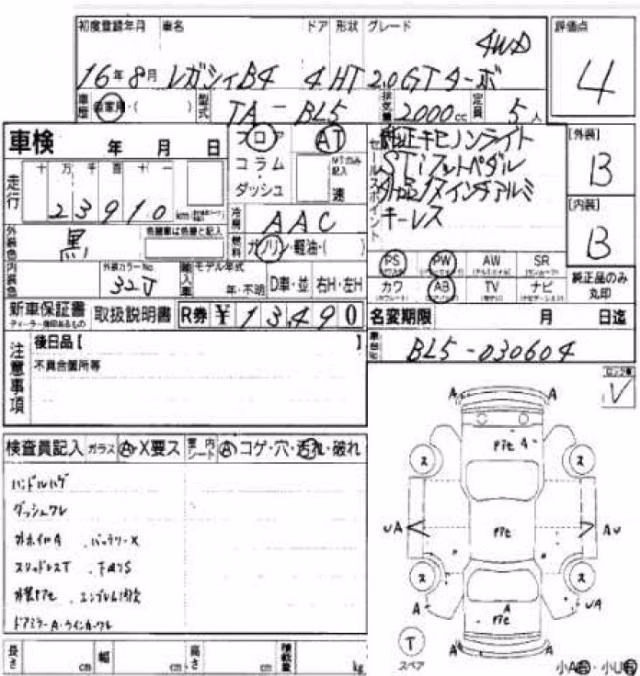 初度登録年月 車名 ドア 形状 グレード 評価点
4WD
16年8月 レガシィB4 4 HT 2.0GTターボ 4
車歴 自家用・( ) 型式 TA-BL5 排気量 2000cc 定員 5人
車検 年 月 日
フロア AT
コラム・ダッシュ MTのみ記入 速
セールスポイント
純正キセノンライト
STiフットペダル
社品17インチアルミ
キーレス
[外装] B
[内装] B
走行 十万千百十一
23910 km
冷房 AAC
燃料 ガソリン・軽油・( )
外装色 黒 色替車は色替と記入
内装色 外装カラーNo. 32J 輸入車 モデル年式 年・不明 D車・並 右H・左H
PS PW AW SR
カワ AB TV ナビ
純正品のみ丸印
新車保証書 取扱説明書 R券 ¥13,490
名変期限 月 日迄
車台No. BL5-030604
注意事項
後日品 [ ]
不具合箇所等
検査員記入 ガラス A・X要ス 室内シート A・コゲ・穴・汚れ・破れ
ハンドルハゲ
ダッシュワレ
外ホイルA . バッテリーX
スタッドレスT . 下回りS
外装Pテセ . エンブレム
ドアミラーA・ウインカーワレ
V
A A
Pテセ A
ス ス
UA Pテセ AU
ス ス
A A UA
Pテセ
T A A
スペア
小A有・小U有
長さ cm 幅 cm 高さ cm 積載量 kg